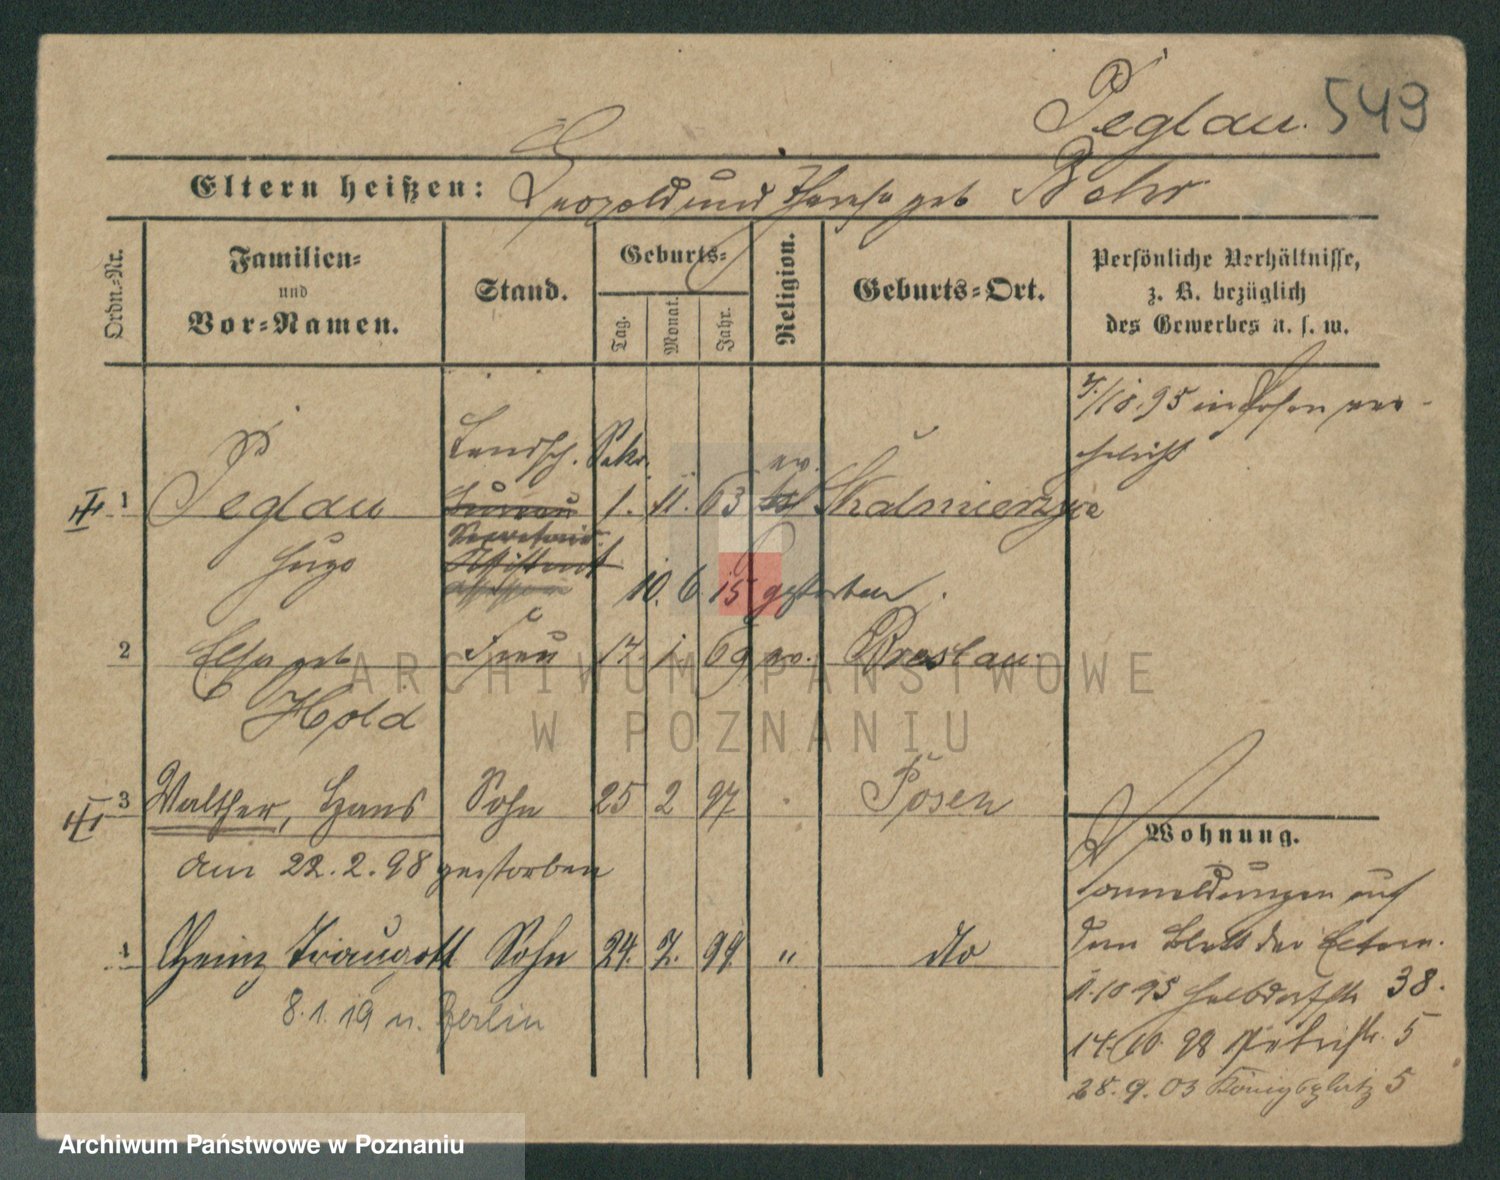 Peglau. 549
Eltern heißen: Leopold und Therese geb Behr
Ordn.-Nr.
Familien-
und
Vor-Namen.
Stand.
Geburts-
Tag.
Monat.
Jahr.
Religion.
Geburts-Ort.
Persönliche Verhältnisse,
z. B. bezüglich
des Gewerbes u. s. w.
7./10.95 in Posen ver-
ehelicht
Landsch. Sekr.
ev.
1 Peglau 1. 11. 63 Skalmierzyce
Bureau
Secretair
Assistent
Hugo
10. 6. 15 gestorben.
2 Elsa geb Frau 17. 1. 69 ev. Breslau
Hold
3 Walther, Hans Sohn 25 2 97 Posen
am 22.2.98 gestorben
4 Heinz Traugott Sohn 24. 7. 99. " dto
8.1.19 n. Berlin
Wohnung.
Anmeldungen auf
dem Blatt der Eltern.
1.10 95 Halbdorfstr 38.
14.10. 98 Petristr. 5
28.9.03 Königsplatz 5
ARCHIWUM PAŃSTWOWE
W POZNANIU
Archiwum Państwowe w Poznaniu